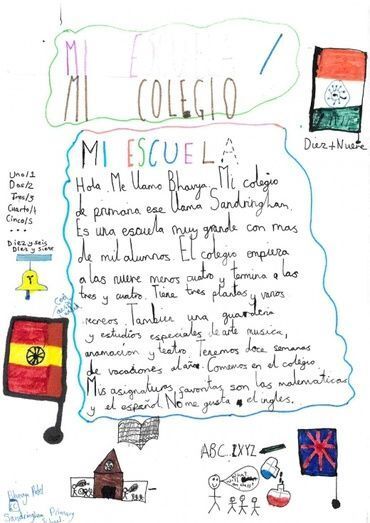 MI ESCUELA /
MI COLEGIO
Diez + Nueve
Uno/1
Dos/2
Tres/3
Cuarto/4
Cinco/5
...
Diez y seis
Diez y siete
MI ESCUELA
Hola. Me llamo Bhavya. Mi colegio
de primaria ese llama Sandringham.
Es una escuela muy grande con mas
de mil alumnos. El colegio empieza
a las nueve menos cuatro y termina a las
tres y cuatro. Tiene tres plantas y varios
recreos. Tambien una guarderia
y estudios especiales de arte musica,
anamacion y teatro. Tenemos doce semanas
de vacaciones al año. Comemos en el colegio.
Mis asignaturas favoritas son las matematicas
y el español. No me gusta el ingles.
ABC..ZXYZ
Bhavya Patel
Sandringham Primary
School